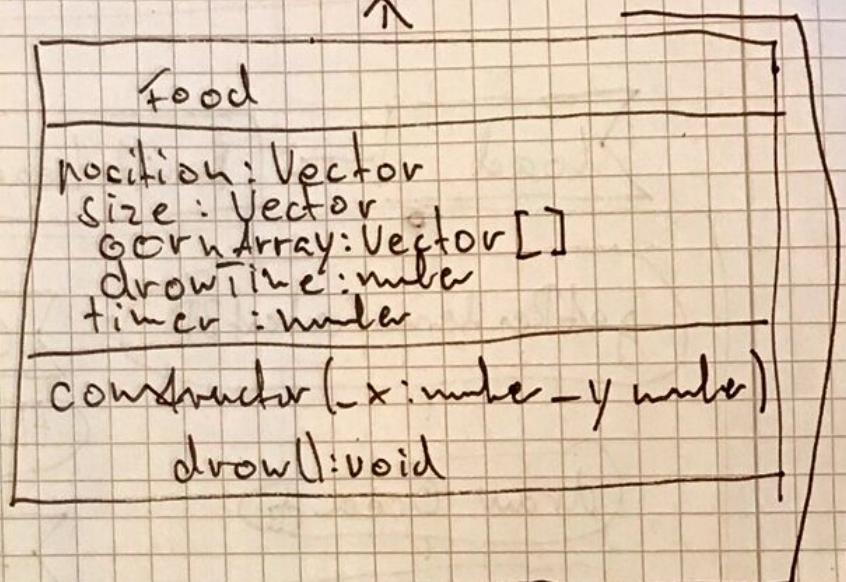 Food
position: Vector
size: Vector
cornArray: Vector[]
drawTime: number
timer: number
constructor(_x: number _y number)
draw(): void